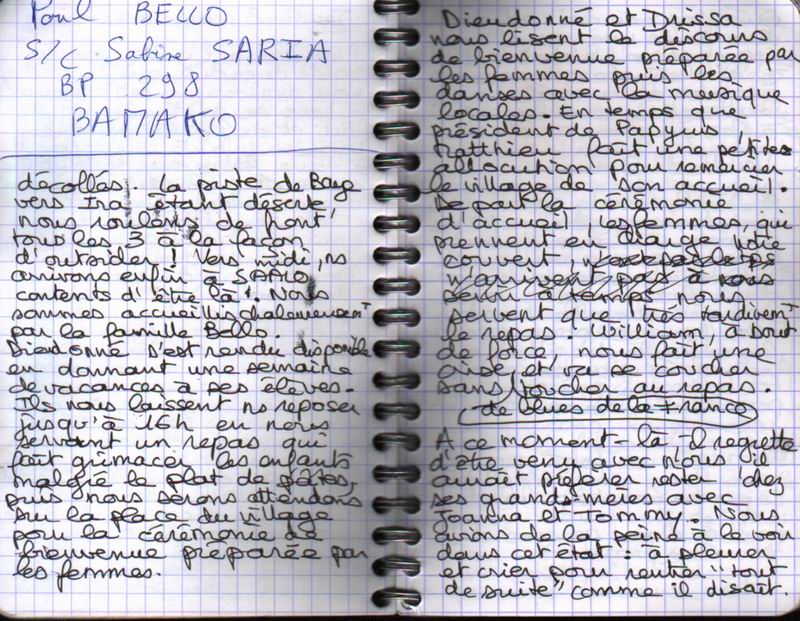 Paul BELLO
S/C Sabine SARIA
BP 298
BAMAKO
décollés. La piste de Baye
vers Ira étant déserte,
nous roulons de front
tous les 3 à la façon
d'outsider ! Vers midi, ns
arrivons enfin à SAMO,
contents d'être là ! Nous
sommes accueillis chaleureusemt
par la famille Bello.
Dieudonné s'est rendu disponible
en donnant une semaine
de vacances à ses élèves.
Ils nous laissent ns reposer
jusqu'à 16h en nous
servant un repas qui
fait grimacer les enfants
malgré le plat de pâtes,
puis nous serons attendons
sur la place du village
pour la cérémonie de
bienvenue préparée par
les femmes.
Dieudonné et Drissa
nous lisent le discours
de bienvenue préparée par
les femmes puis les
danses avec la musique
locales. En temps que
président de Papyus,
Matthieu fait une petites
allocution pour remercier
le village de son accueil.
De part la cérémonie
d'accueil, les femmes, qui
prennent en charge notre
couvert,
n'arrivent pas à nous
servir à temps nous
servent que très tardivemt
le repas. William, à bout
de force, nous fait une
crise et va se coucher
sans toucher au repas.
de blues de la France
A ce moment-là il regrette
d'être venu avec nous il
aurait préférer rester chez
ses grands-mères avec
Joanna et Tommy. Nous
avons de la peine à le voir
dans cet état : à pleurer
et crier pour rentrer "tout
de suite" comme il disait.